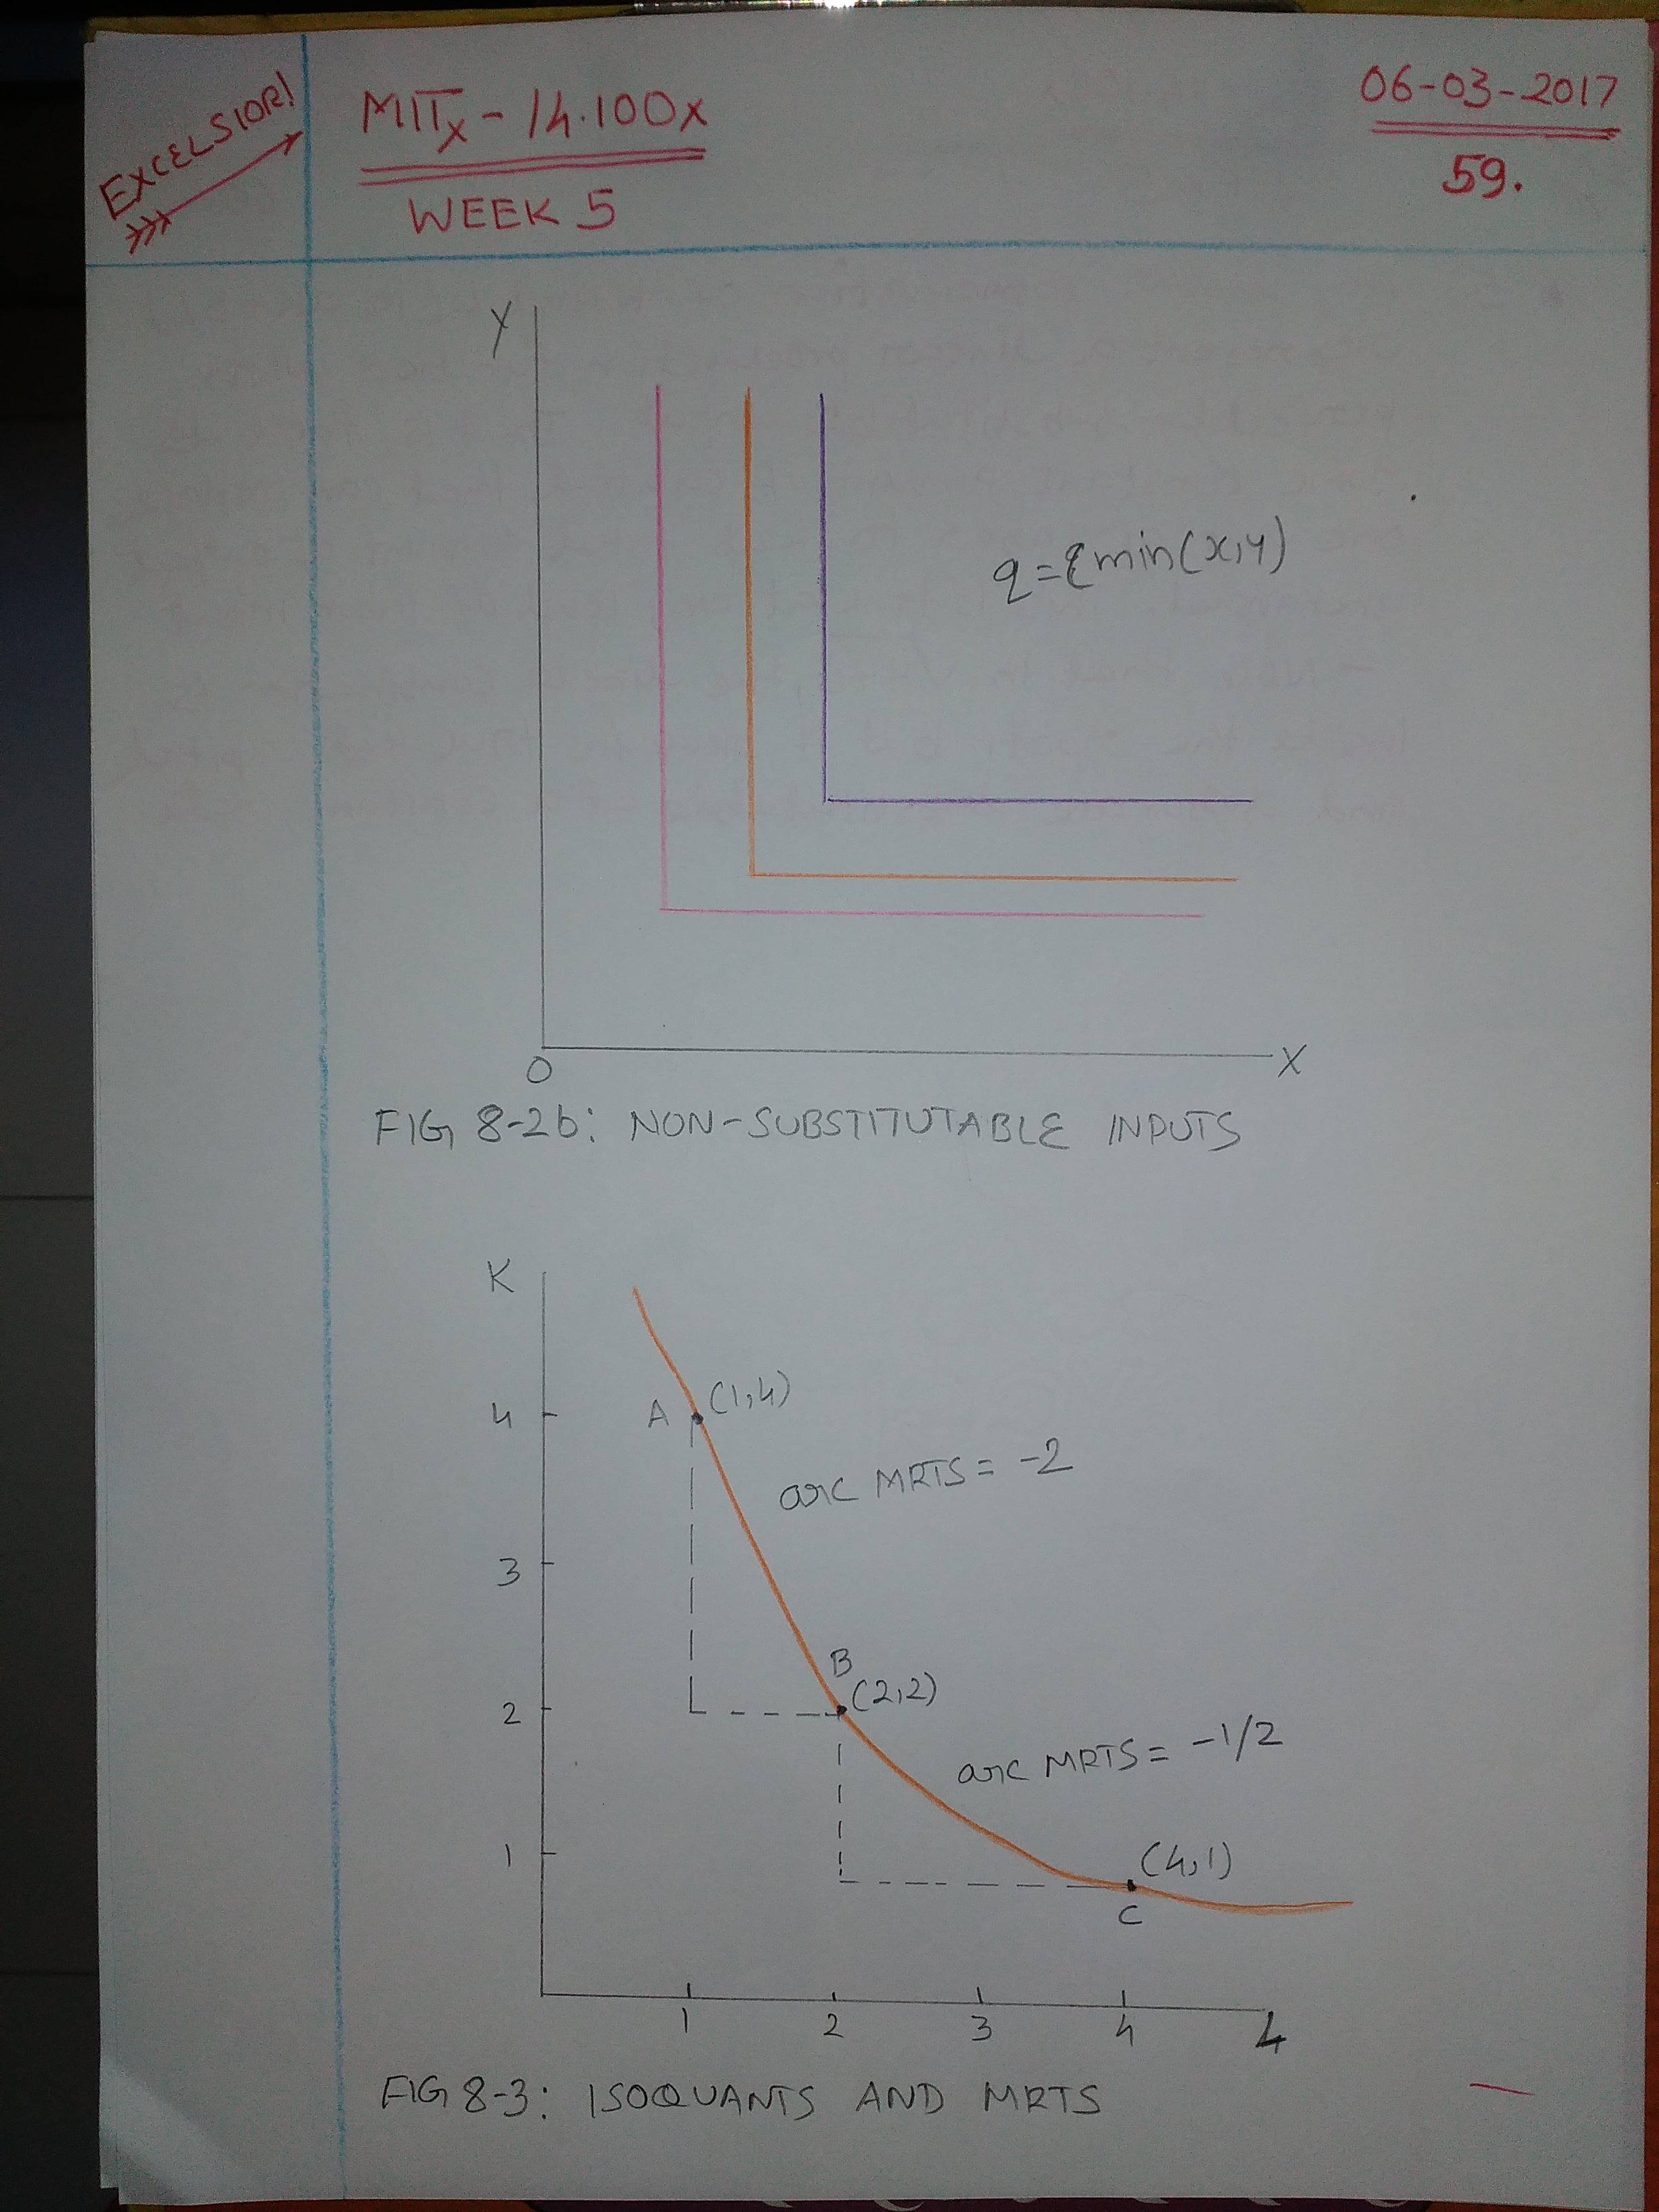 EXCELSIOR!
MITx - 14.100x
WEEK 5
06-03-2017
59.
Y
q = {min(x,y)
O
X
FIG 8-2b: NON-SUBSTITUTABLE INPUTS
K
4
A
(1,4)
arc MRTS = -2
3
B
2
(2,2)
arc MRTS = -1/2
1
(4,1)
C
1 2 3 4 L
FIG 8-3: ISOQUANTS AND MRTS